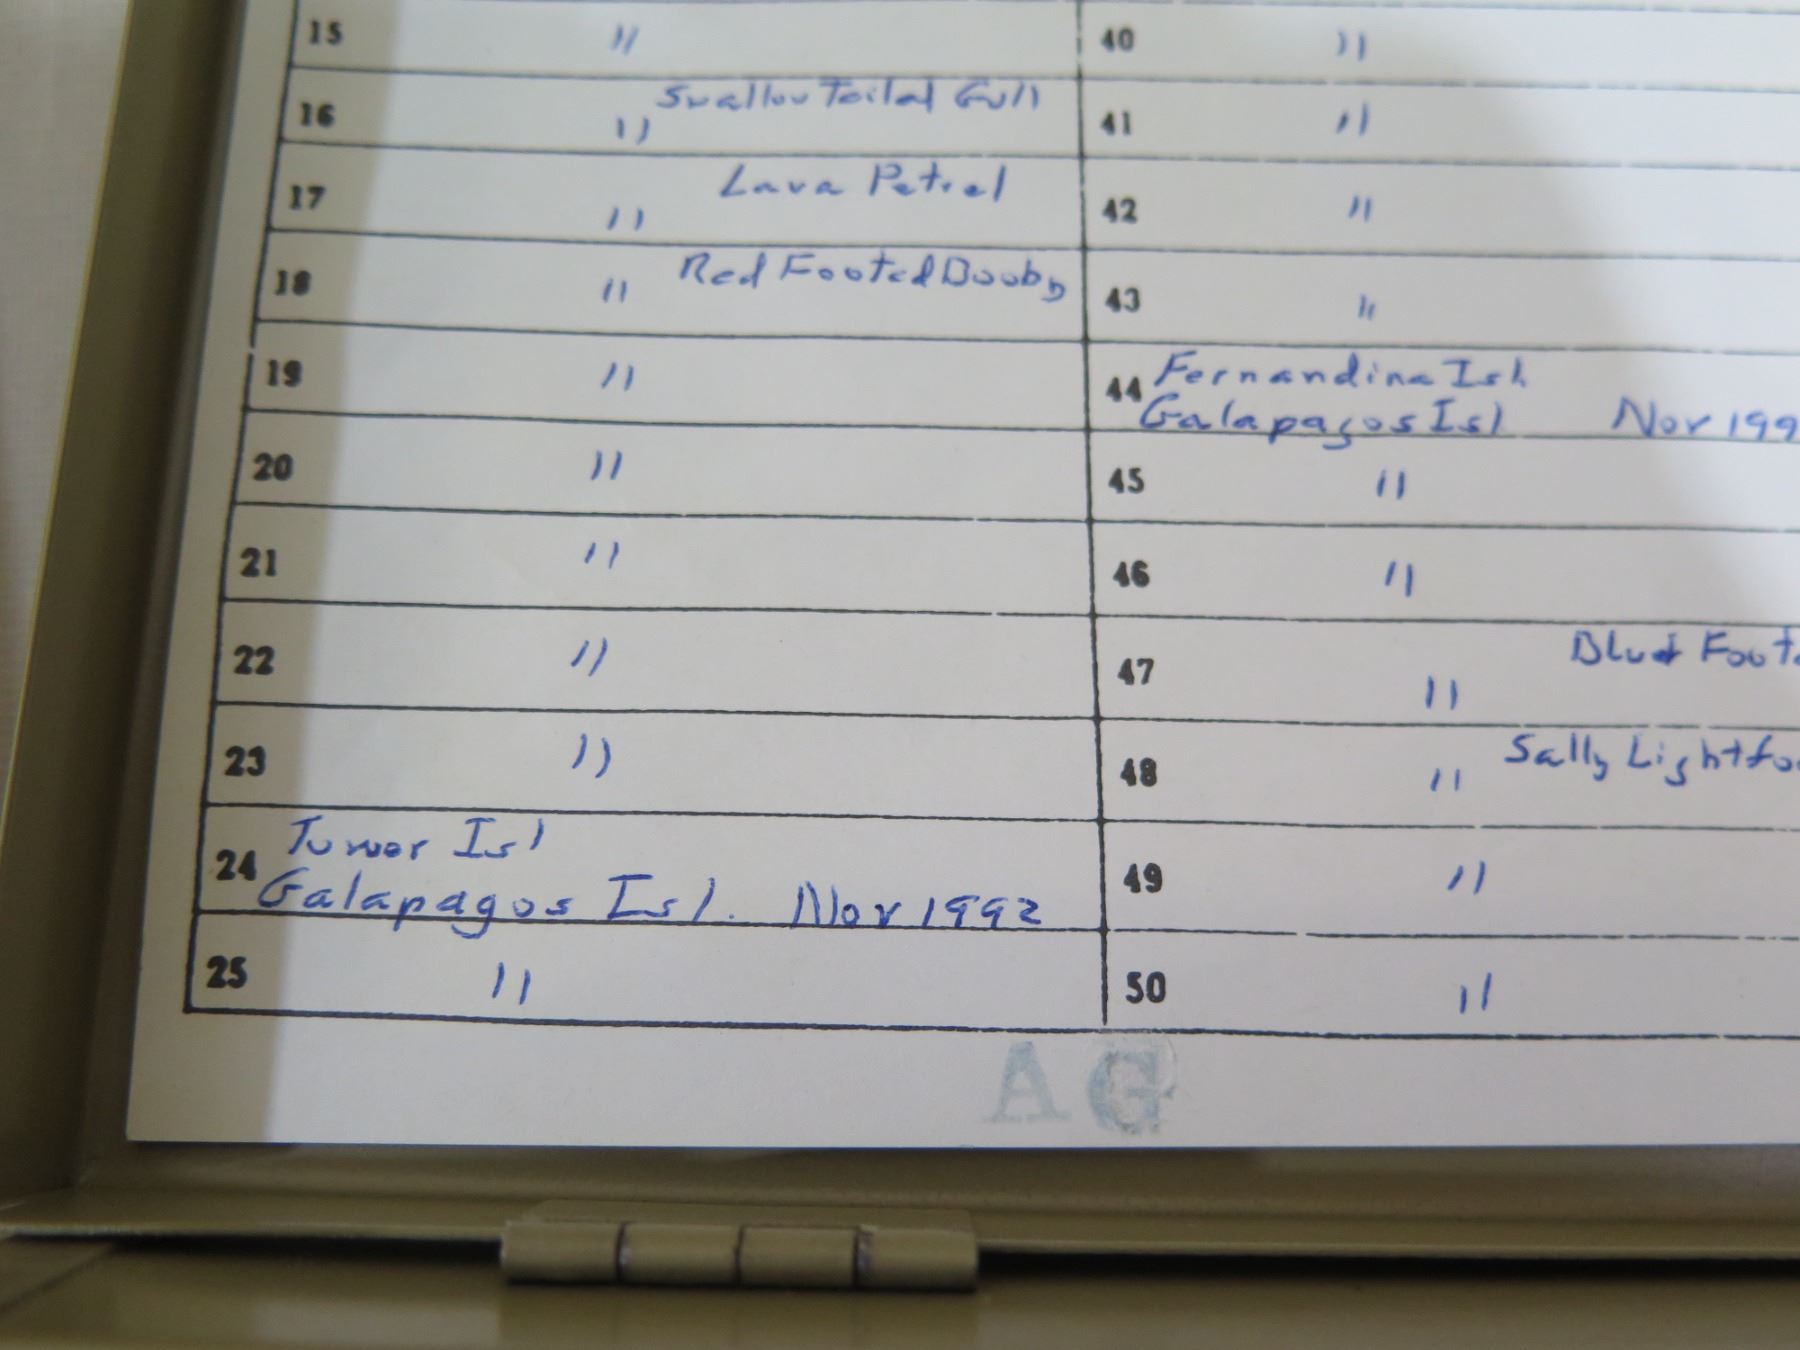 15 "
Swallow Tailed Gull
16 "
Lava Petrel
17 "
Red Footed Booby
18 "
19 "
20 "
21 "
22 "
23 "
Tower Isl
24 Galapagos Isl. Nov 1992
25 "
40 "
41 "
42 "
43 "
44 Fernandina Isl.
Galapagos Isl Nov 199
45 "
46 "
Foot
47 "
Sally Lightfoo
48 "
49 "
50 "
AG